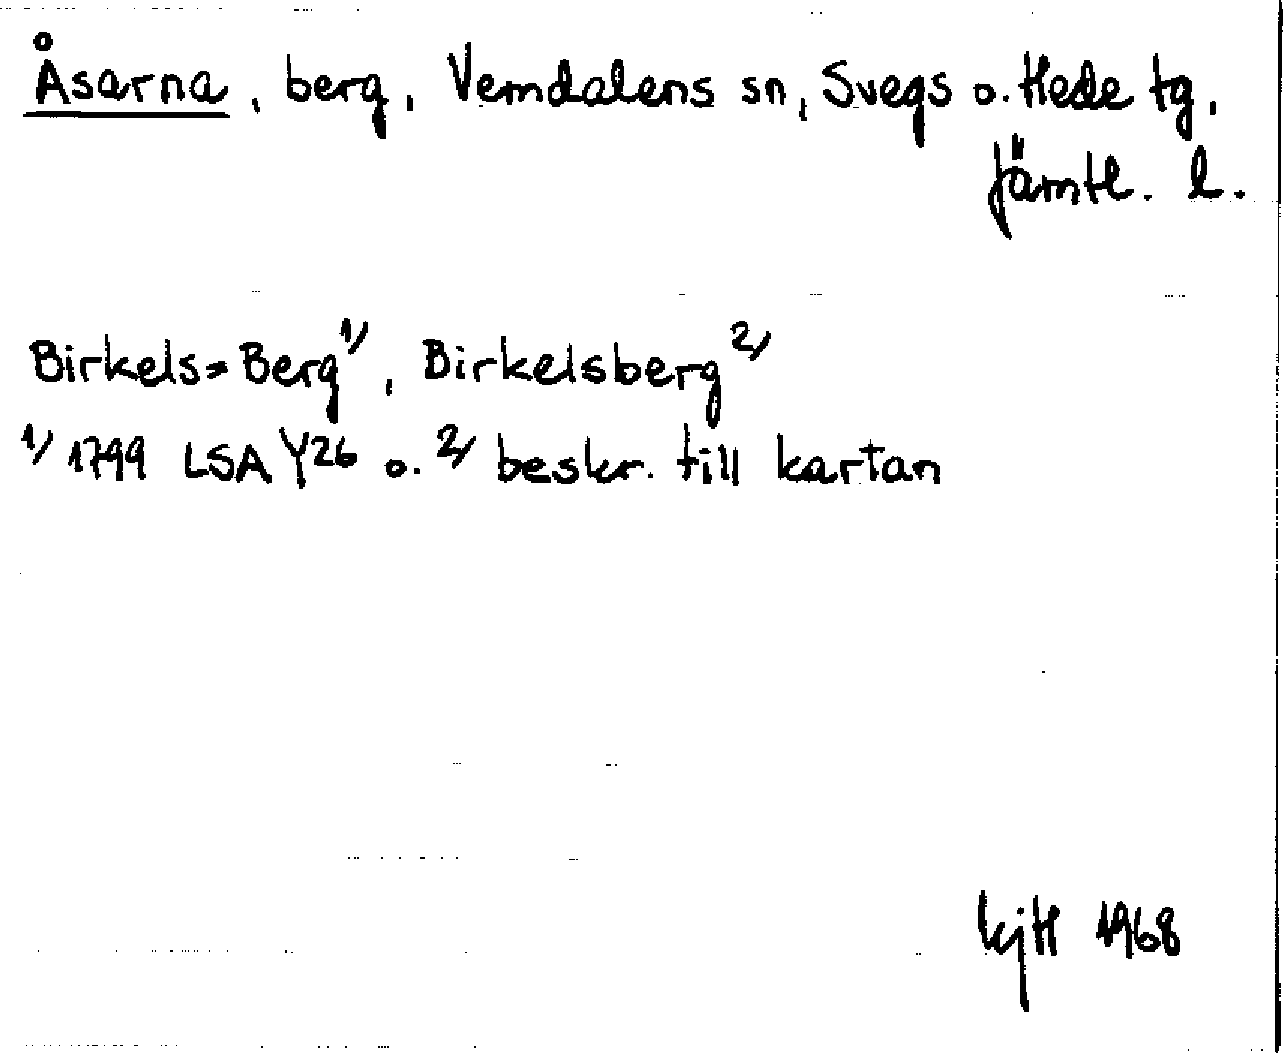 Åsarna, berg, Vemdalens sn, Svegs o. Hede tg.
Jämtl. l.
Birkels=Berg 1/, Birkelsberg 2/
1/ 1799 LSA Y26 o. 2/ beskr. till kartan
kjH 1968